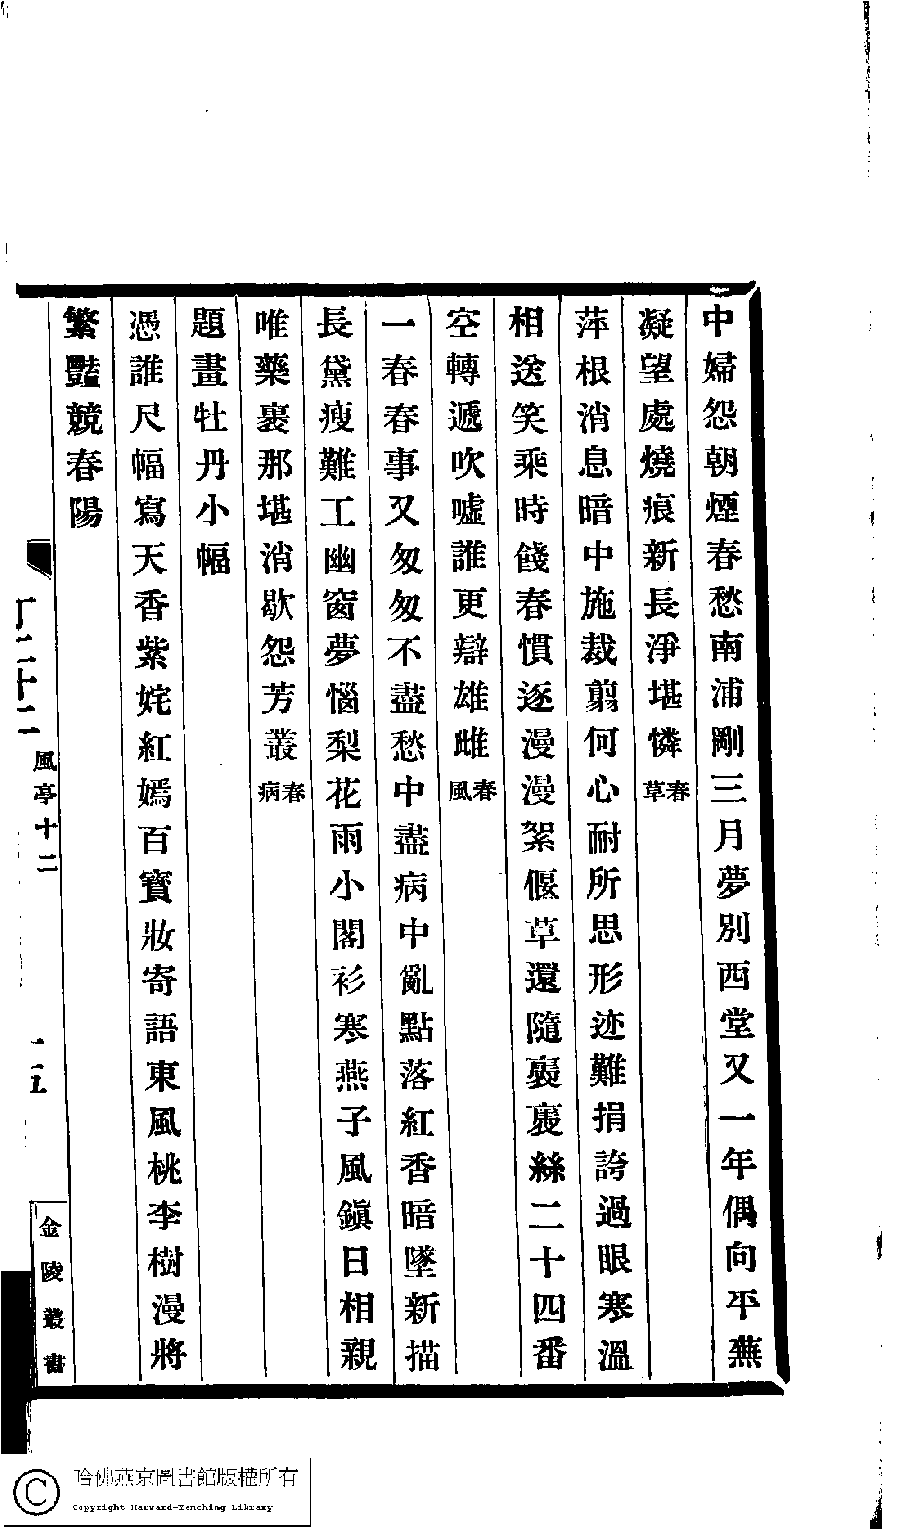 中婦怨朝煙春愁南浦剛三月夢別西堂又一年偶向平蕪
凝望處燒痕新長淨堪憐春草
萍根消息暗中施裁翦何心耐所思形迹難捐誇過眼寒溫
相送笑乘時餞春慣逐漫漫絮偃草還隨裊裊絲二十四番
空轉遞吹噓誰更辯雄雌春風
一春春事又匆匆不盡愁中盡病中亂點落紅香暗墜新描
長黛瘦難工幽窗夢惱梨花雨小閣衫寒燕子風鎭日相親
唯藥裹那堪消歇怨芳叢春病
題畫牡丹小幅
憑誰尺幅寫天香紫姹紅嫣百寶妝寄語東風桃李樹漫將
繁豔競春陽
風亭十二
金陵叢書
哈佛燕京圖書館版權所有
Copyright Harvard-Yenching Library